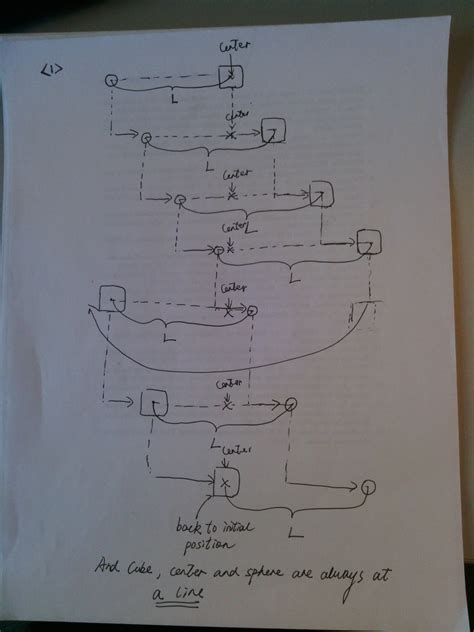 center
<1>
L
center
L
center
L
center
L
center
L
center
L
center
back to initial
position
L
And Cube, center and sphere are always at
a line